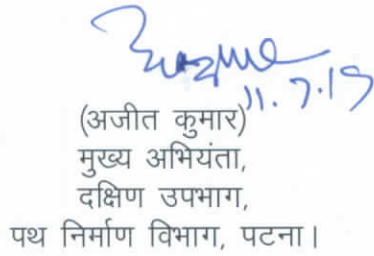 11.7.19
(अजीत कुमार)
मुख्य अभियंता,
दक्षिण उपभाग,
पथ निर्माण विभाग, पटना।